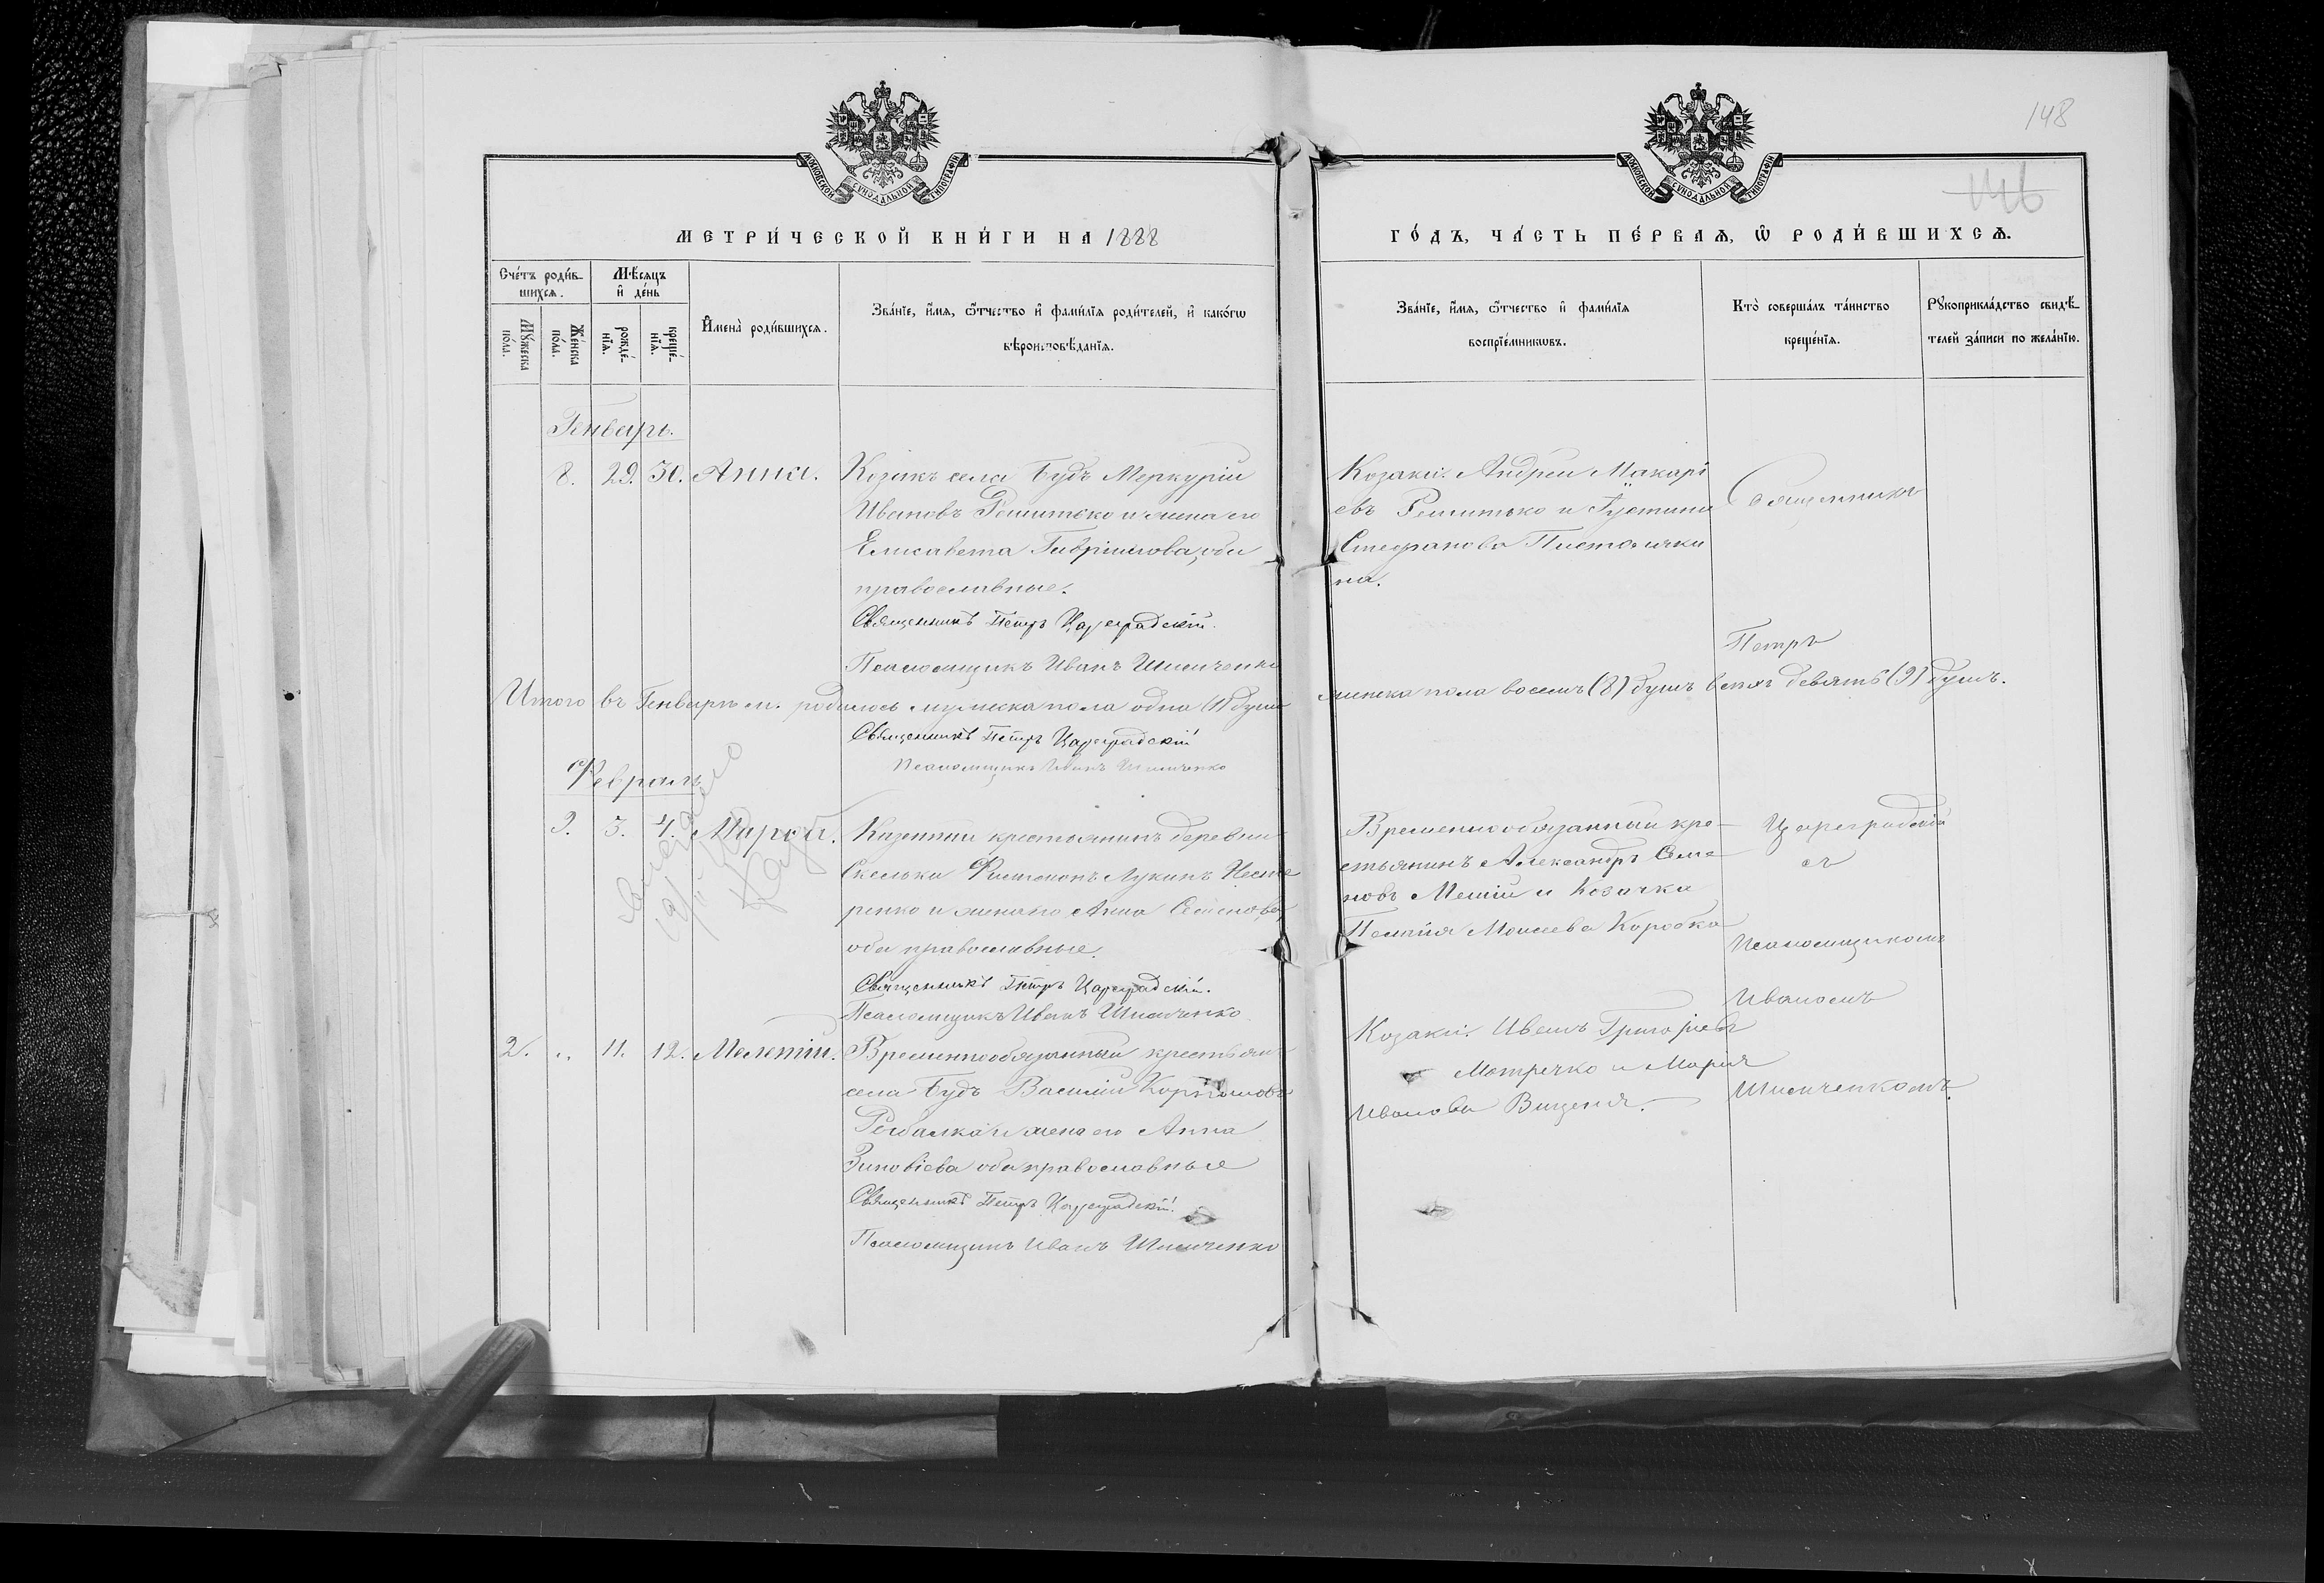 148
146
МОСКОВСКОЙ СѴНОДАЛЬНОЙ ТИПОГРАФІИ
МОСКОВСКОЙ СѴНОДАЛЬНОЙ ТИПОГРАФІИ
МЕТРИ́ЧЕСКОЙ КНИ́ГИ НА 1888
ГО́ДЪ, ЧА́СТЬ ПЕ́РВАѦ, Ѡ҆ РОДИ́ВШИХСѦ.
Сче́тъ роди́в-
шихсѧ.
Мѣ́сѧцъ
и҆ де́нь
Мꙋ́жеска
по́ла.
Же́нска
по́ла.
рожде́-
нїѧ.
креще́-
нїѧ.
И҆мена̀ роди́вшихсѧ.
Зва́нїе, и҆́мѧ, ѻ҆́тчество и҆ фами́лїѧ роди́телей, и҆ како́гѡ
вѣроисповѣ́данїѧ.
Зва́нїе, и҆́мѧ, ѻ҆́тчество и҆ фами́лїѧ
воспрїе́мникѡвъ.
Кто̀ соверша́лъ та́инство
креще́нїѧ.
Рꙋкоприкла́дство свидѣ́-
телей за́писи по жела́нїю.
Генварь.
8. 29. 30. Анна. Козакъ села Будъ Меркурій
Ивановъ Решитько и жена его
Елисавета Гавріилова, оба
православные.
Священникъ Петръ Цареградскій.
Псаломщикъ Иванъ Шимченко
Козаки: Андрей Макарі
евъ Решитько и Іустина
Стефанова
на.
Священникъ
Петръ
Итого въ Генварѣ м. родилось мужеска пола одна (1) душа
женска пола восемь (8) душъ всѣхъ девять (9) душъ.
Священникъ Петръ Цареградскій
Псаломщикъ Иванъ Шимченко
Февраль
9. 3. 4. Марѳа. Казенный крестьянинъ деревни
Скельки Филимонъ Лукинъ Несте
ренко и жена его Анна Семенова,
оба православные.
Священникъ Петръ Цареградскій.
Псаломщикъ Иванъ Шимченко
Временнообязанный кре-
стьянинъ Александръ Семе
новъ и козачка
Моисеева Коробка
Цареградскій
съ
Псаломщикомъ
Иваномъ
Шимченкомъ.
2. „ 11. 12. Мелетій. Временнообязанный крестьян
села Будъ Василій
Рыбалка и жена его Анна
Зиновіева оба православные
Священникъ Петръ Цареградскій.
Псаломщикъ Иванъ Шимченко
Козаки: Иванъ Григорьевъ
и Марія
Иванова